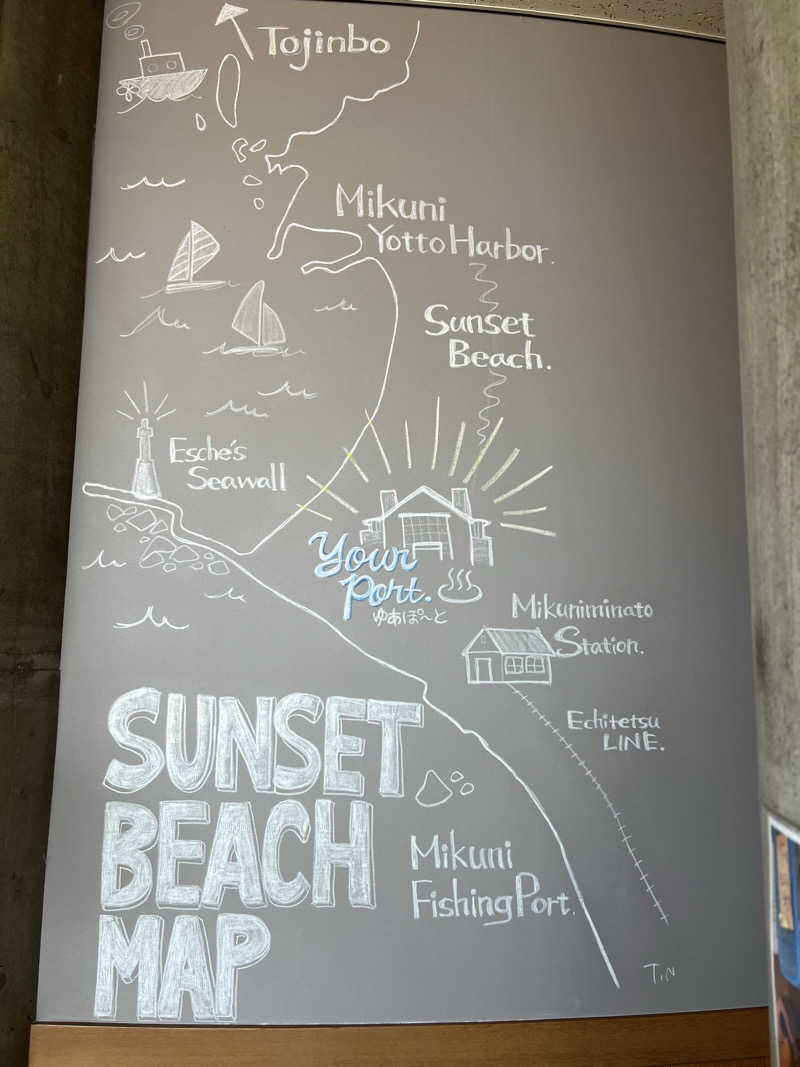 Tojinbo
Mikuni
Yotto Harbor.
Sunset
Beach.
Esche's
Seawall
Your
Port.
ゆあぽーと
Mikuniminato
Station.
Echitetsu
LINE.
SUNSET
BEACH
MAP
Mikuni
Fishing Port.
T.N